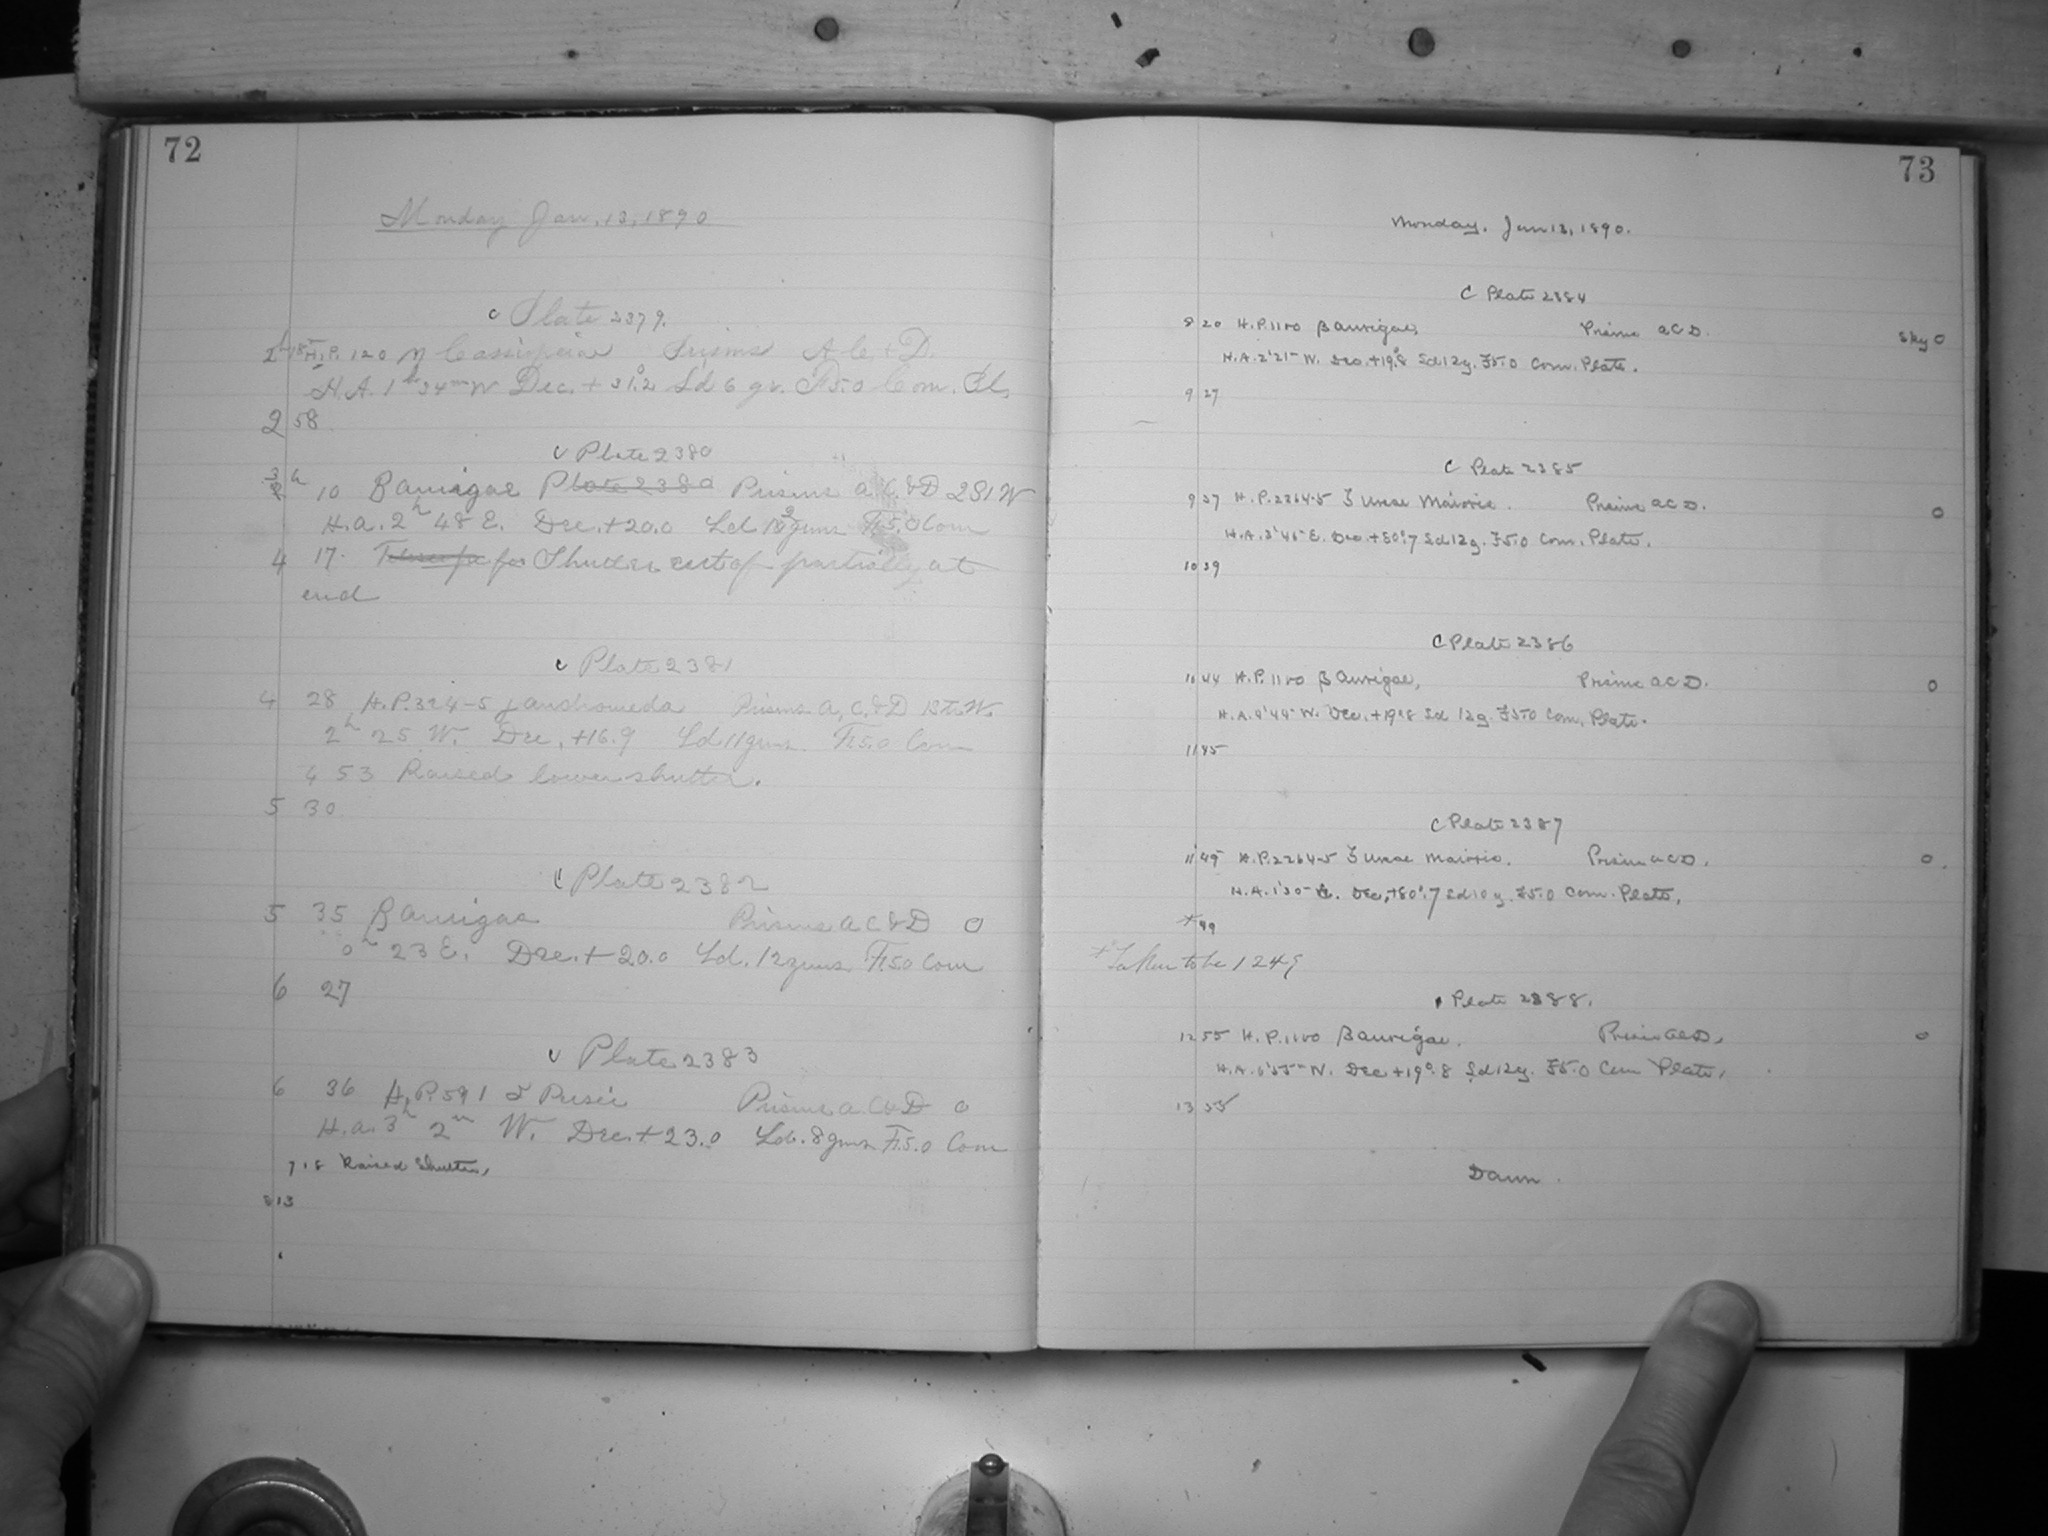 72
Monday Jan. 13, 1890
C Plate 2379.
2 15 H.P. 120 η Cassiopeiae Prisms A. C. & D.
H.A. 1h 34m W Dec. + 31.2 Sd 6 gr. F5.0 Com. Pl.
2 58
C Plate 2380
3h 10 β Aurigae Plate 2380 Prisms a. C. & D 2S1W
H.a. 2h 48 E. Dec. +20.0 Sd 12 gms F5.0 Com
4 17. for Shutter cut off partially at
end
C Plate 2381
4 28 H.P. 324-5 γ andromeda Prisms a, C. & D W.
2h 25 W. Dec. +16.9 Sd 11 gms. F5.0 Com
4 53 Raised lower shutter.
5 30
C Plate 2382
5 35 β Aurigae Prisms a C & D 0
0h 23 E. Dec. + 20.0 Sd. 12 gms. F5.0 Com
6 27
C Plate 2383
6 36 H.P. 591 Persei Prisms a. C & D 0
H.a. 3h 2m W. Dec. + 23.0 Sd. 8 gms F5.0 Com
7 18 Raised Shutter.
8 13
73
Monday. Jan 13, 1890.
C Plate 2384
8 20 H.P. 1100 β Aurigae, Prisms a C D. Sky 0
H.A. 2h 25m W. Dec. +19°.8 Sd 12 g. F5.0 Com. Plate.
9 27
C Plate 2385
9 37 H.P. 2364-5 ζ Ursae Majoris. Prisms a C D. 0
H.A. 3h 45m E. Dec. +80°.7 Sd 12 g. F5.0 Com. Plate.
10 39
C Plate 2386
10 44 H.P. 1100 β Aurigae, Prisms a C D. 0
H.A. 4h 45m W. Dec. +19°.8 Sd 12 g. F5.0 Com. Plate.
11 45
C Plate 2387
11 49 H.P. 2264-5 ζ Ursae Majoris. Prisms a C D. 0.
H.A. 1h 30m E. Dec. +80°.7 Sd 10 g. F5.0 Com. Plate,
+ 49
+ Taken to be 12 49
Plate 2388.
12 55 H.P. 1100 β Aurigae. Prisms a C D, 0
H.A. 6h 55m W. Dec +19°.8 Sd 12 g. F5.0 Com Plate,
13 55
Dawn.